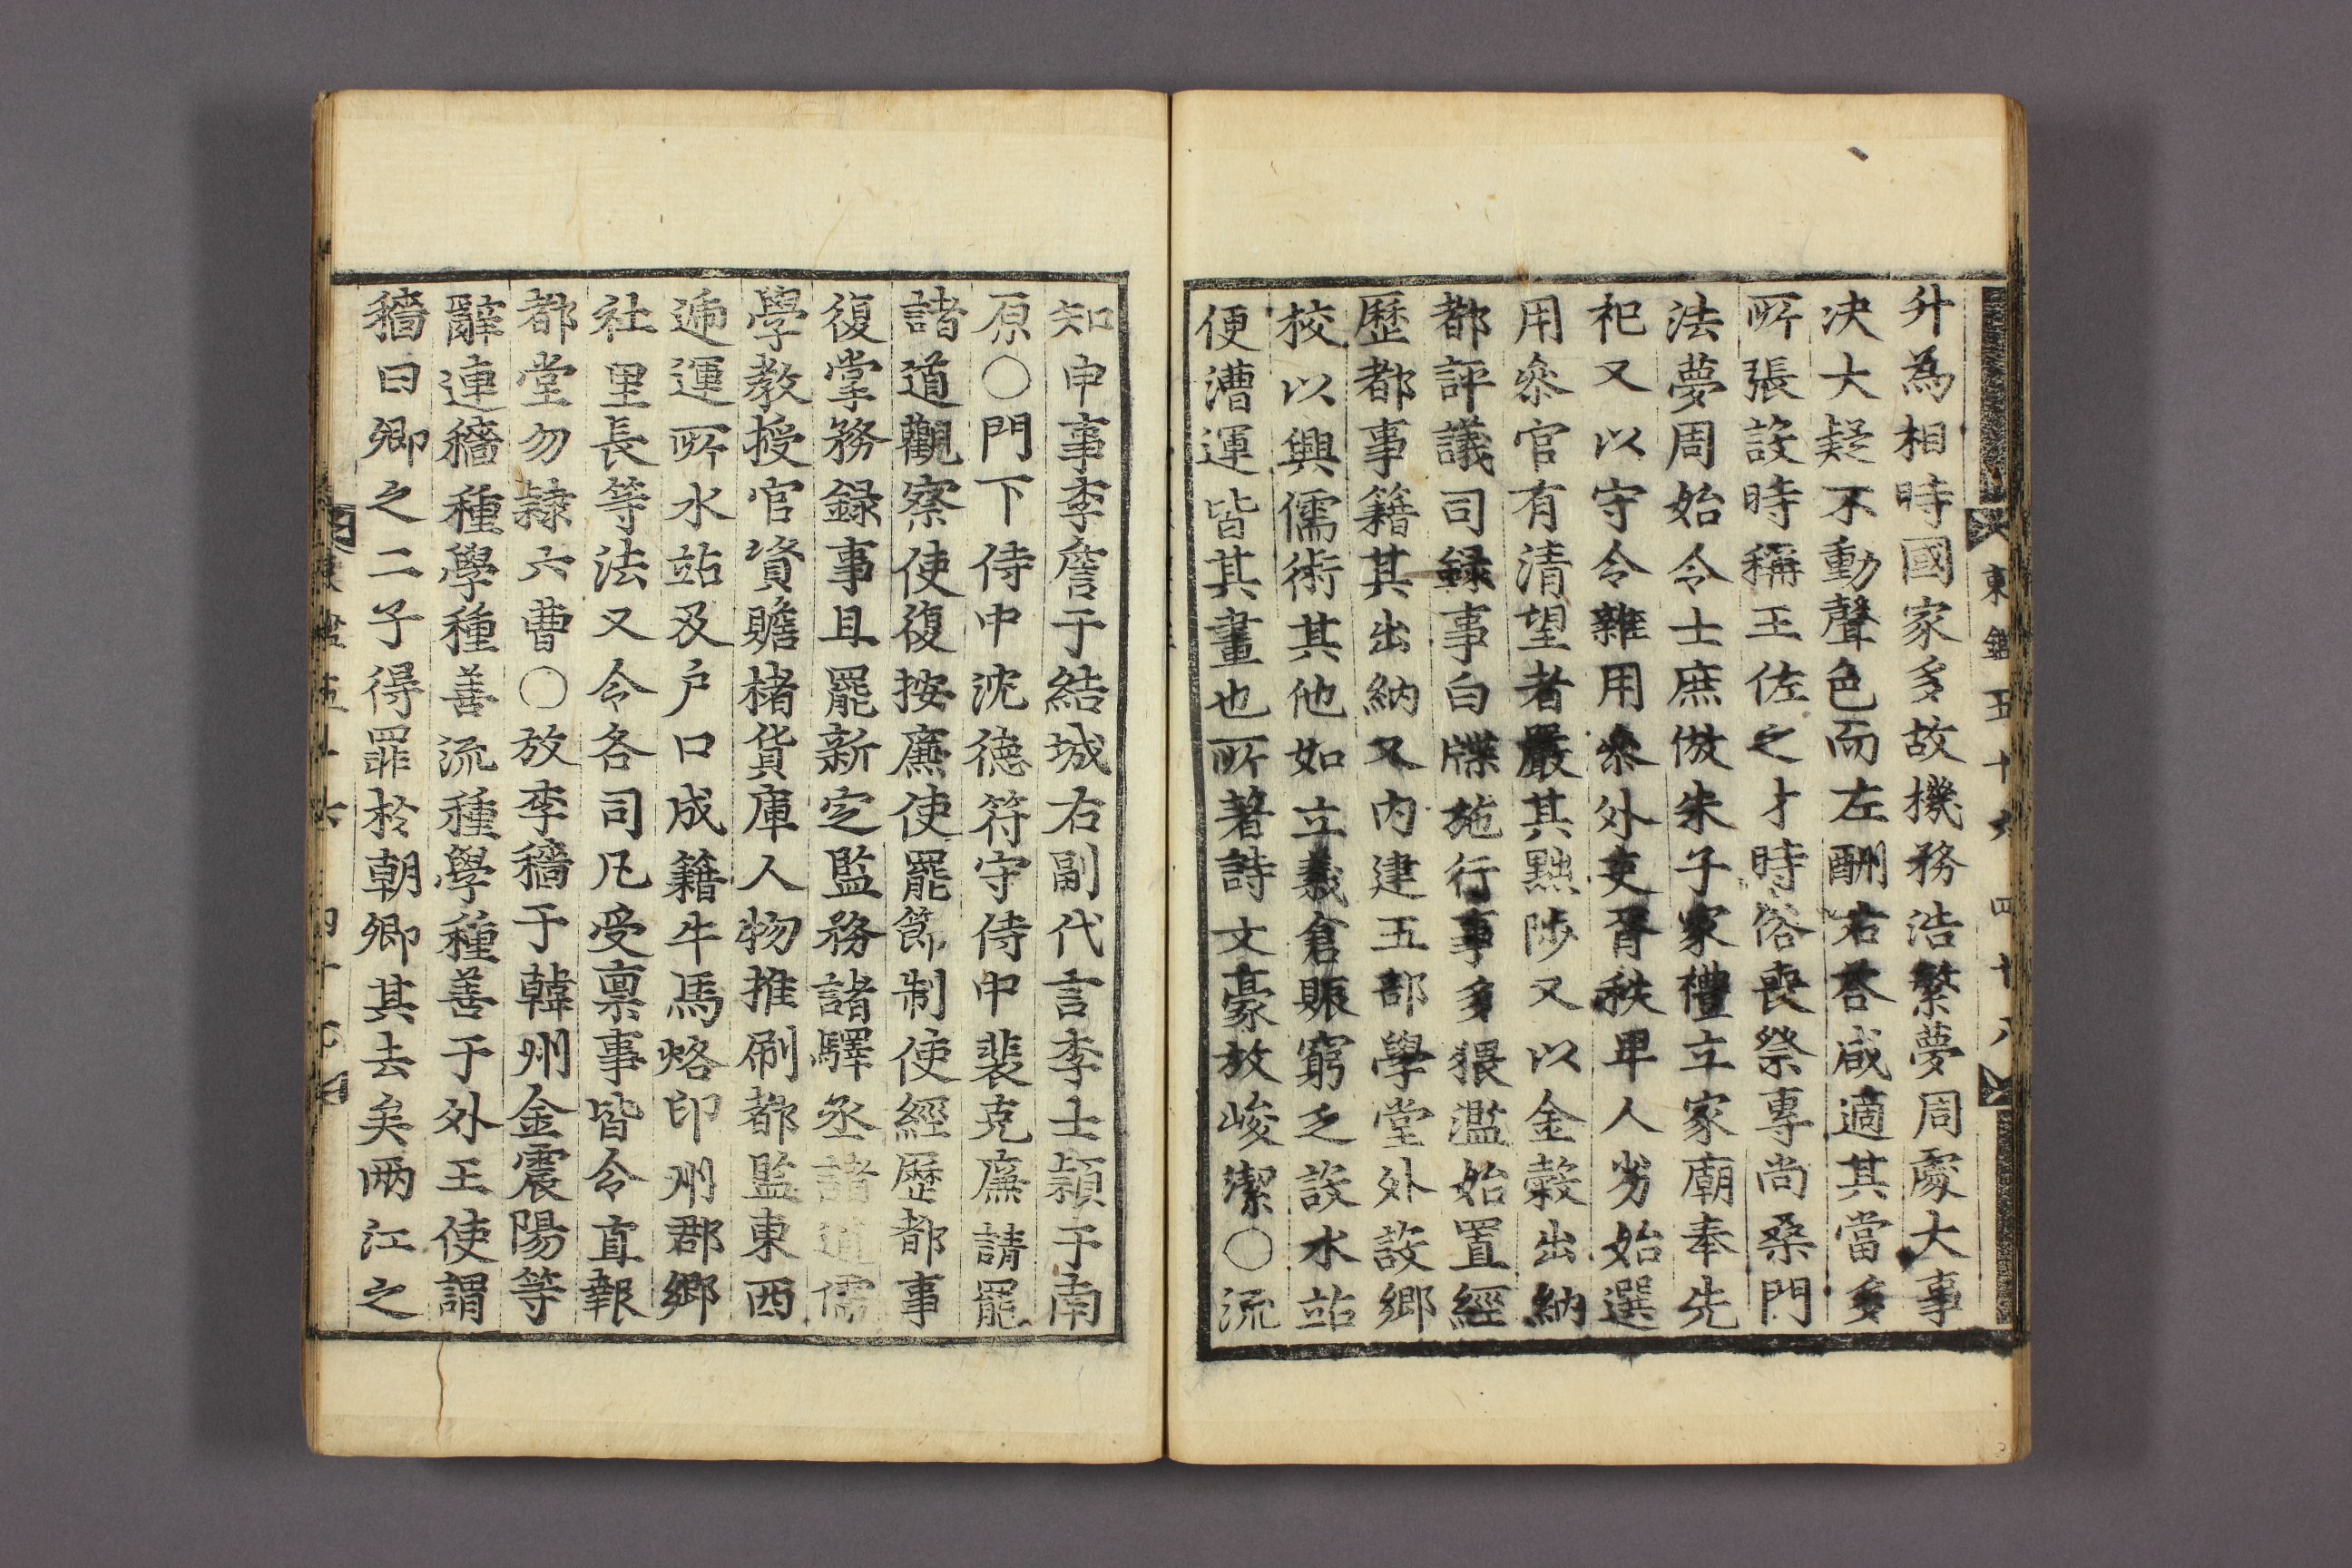 東鑑五十六 四十八
升為相時國家多故機務浩繁夢周處大事
决大疑不動聲色而左酬右荅咸適其當多
所張設時稱王佐之才時俗喪祭專尚桑門
法夢周始令士庶倣朱子家禮立家廟奉先
祀又以守令雜用叅外吏胥秩卑人劣始選
用叅官有清望者嚴其黜陟又以金穀出納
都評議司録事白牒施行事多猥濫始置經
歷都事籍其出納又內建五部學堂外設鄉
校以興儒術其他如立義倉賑窮乏設水站
便漕運皆其畫也所著詩文豪放峻潔○流
知申事李詹于結城右副代言李士穎于南
原○門下侍中沈德符守侍中裴克廉請罷
諸道觀察使復按廉使罷節制使經歷都事
復掌務録事且罷新定監務諸驛丞諸道儒
學教授官資贍楮貨庫人物推刷都監東西
逓運所水站及户口成籍牛馬烙印州郡鄉
社里長等法又令各司凡受禀事皆令直報
都堂勿隷六曹○放李穡于韓州金震陽等
辭連穡種學種善流種學種善于外王使謂
穡曰卿之二子得罪於朝卿其去矣兩江之